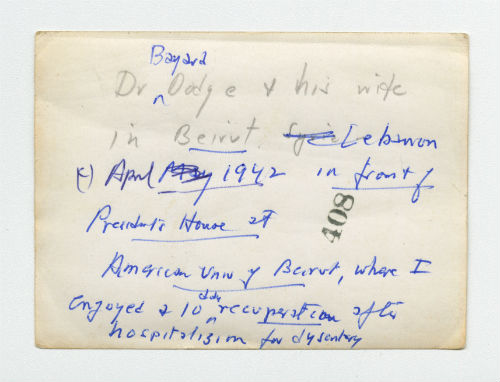 Bayard
Dr ^ Dodge & his wife
in Beirut, Syria Lebanon
(c) April May 1942 in front of
President's House at
408
American Univ of Beirut, where I
day
enjoyed a 10 ^ recuperation after
hospitalization for dysentery